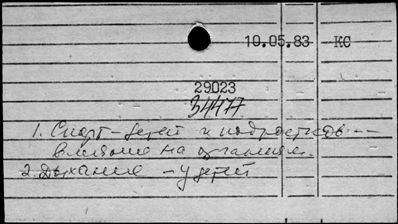 10.05.83 КС
29023
34477
1. Спорт - детей и подростков --
влияние на организм.
2. Дыхание - у детей